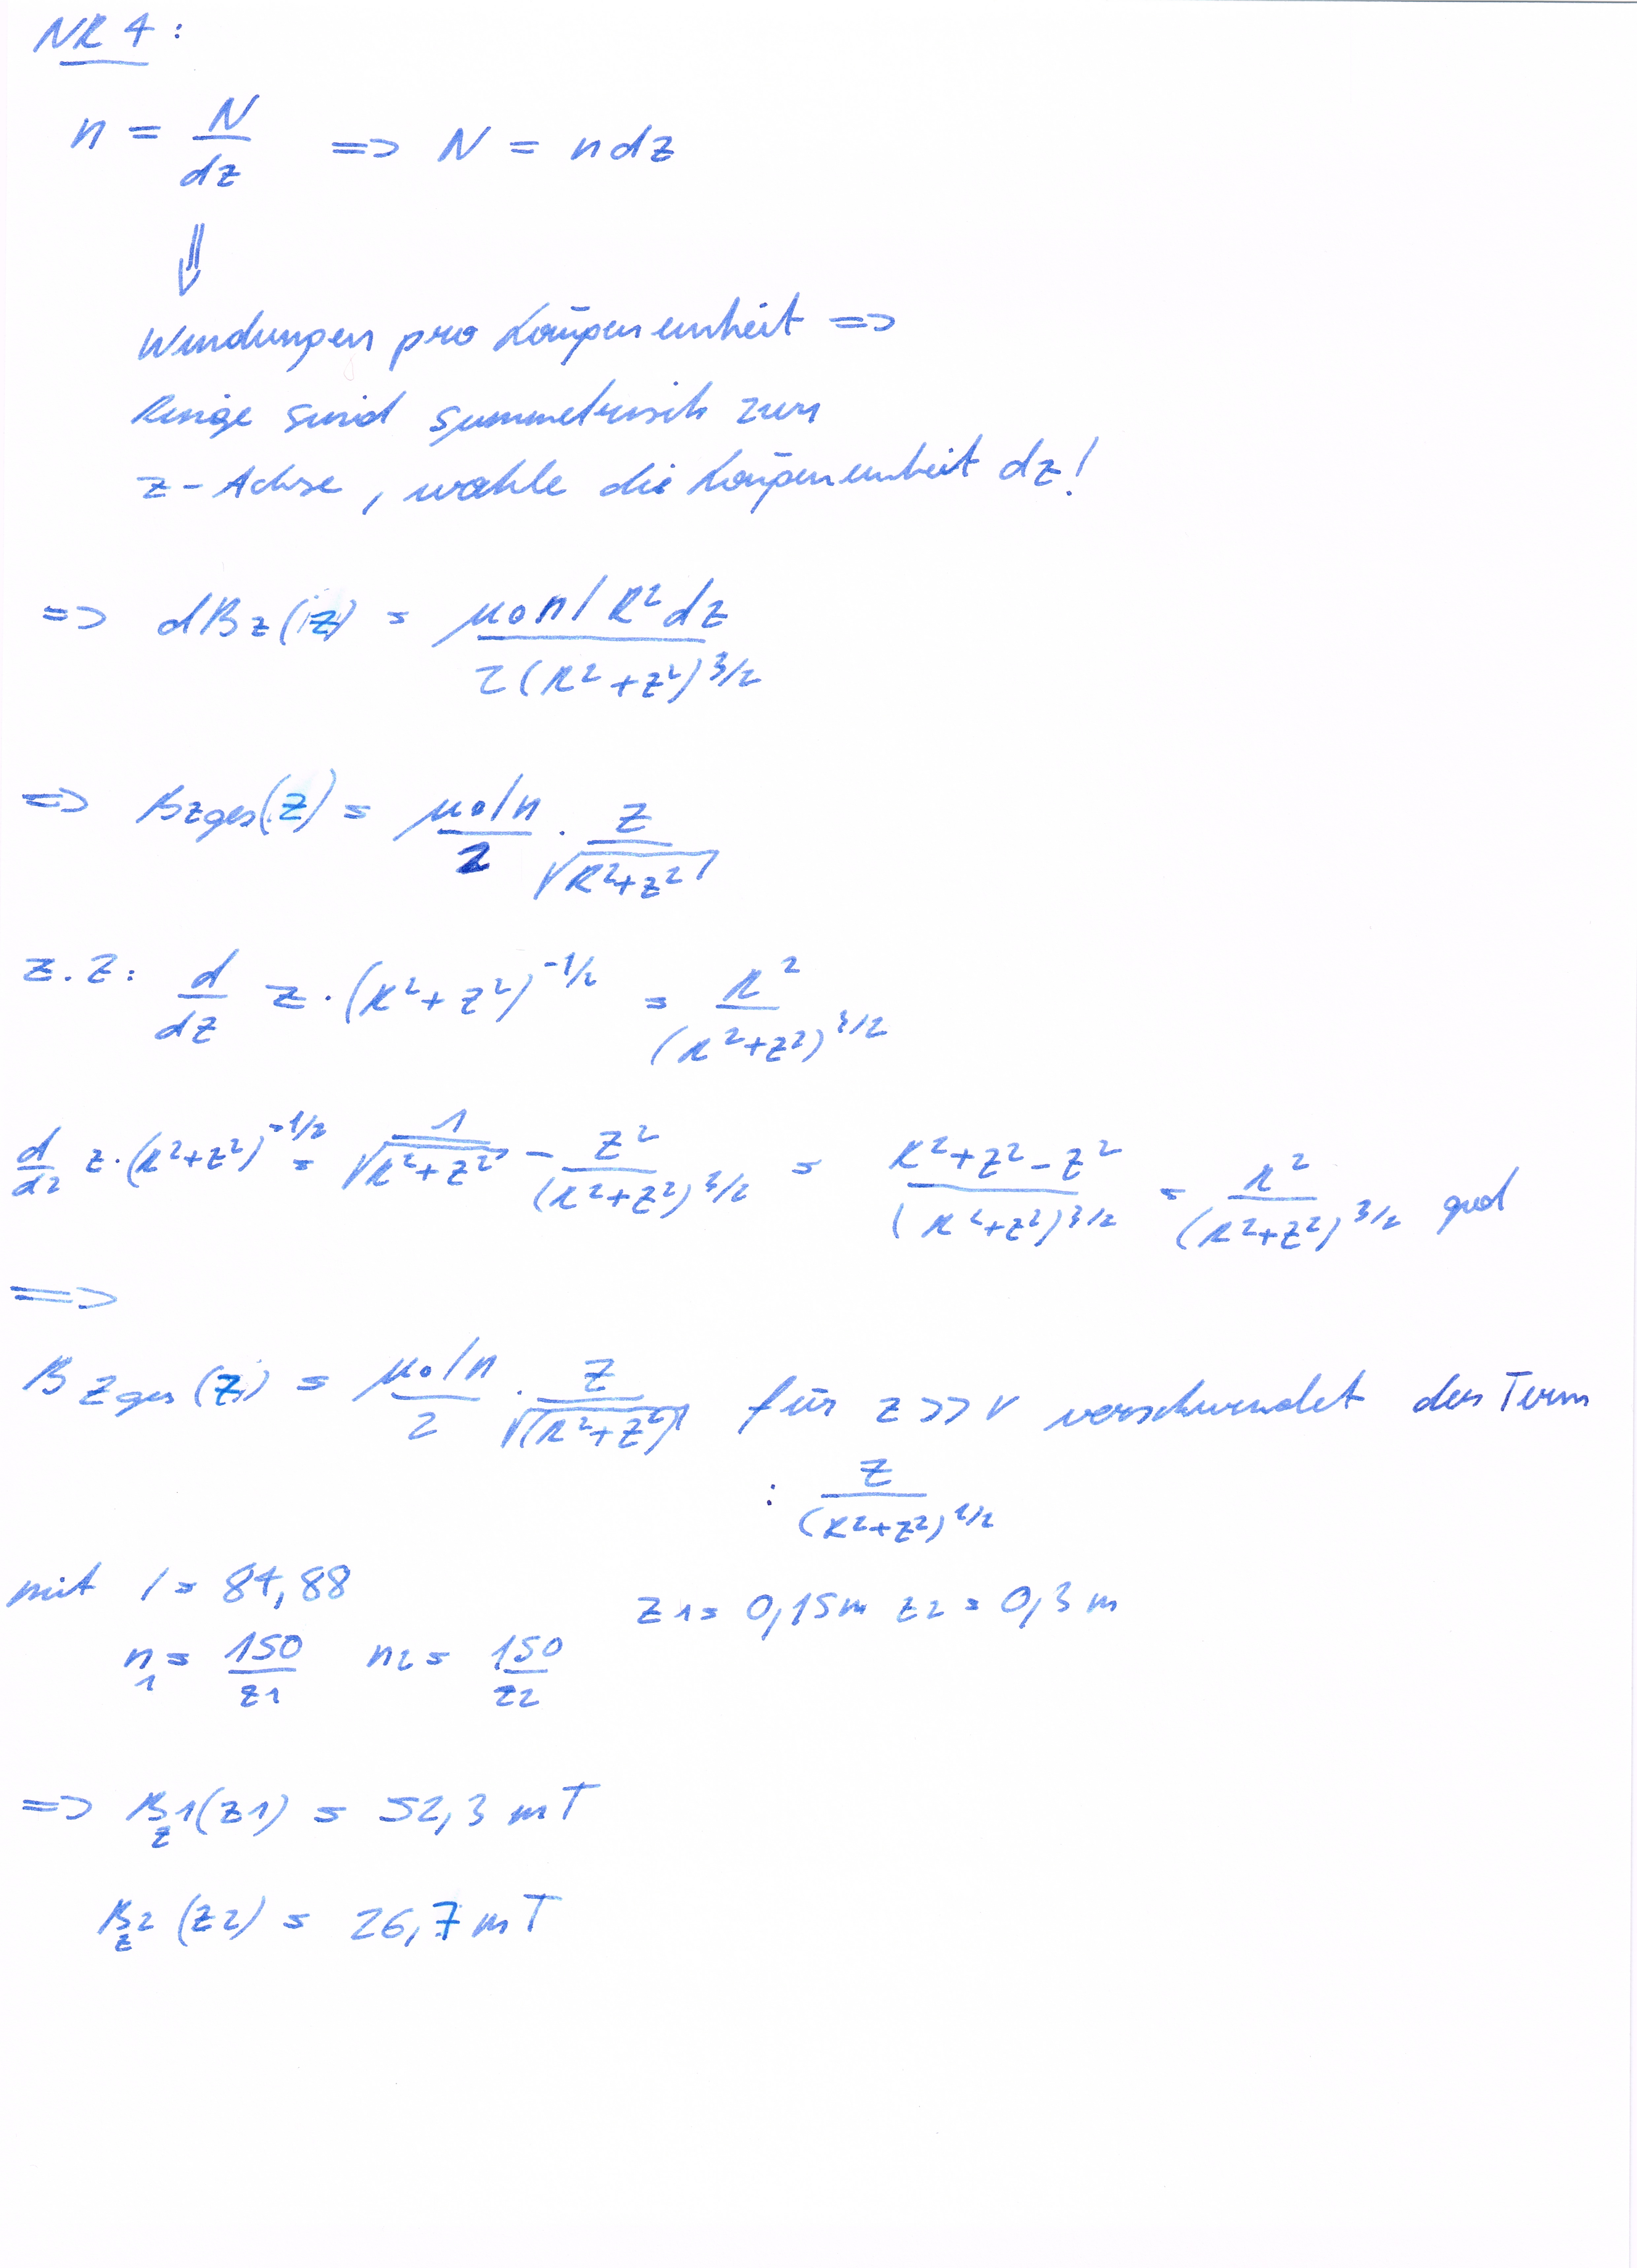 NR 4 :
n = N/dz => N = n dz
⇓
Windungen pro Längeneinheit =>
Ringe sind symmetrisch zur
z - Achse, wähle die Längeneinheit dz!
=> dBz(z) = μ0 n I R² dz / 2 (R² + z²)^3/2
=> Bzges(z) = μ0 I n / 2 · z / √(R² + z²)
z. Z: d/dz z · (R² + z²)^-1/2 = R² / (R² + z²)^3/2
d/dz z · (R² + z²)^-1/2 = 1/√(R² + z²) - z² / (R² + z²)^3/2 = R² + z² - z² / (R² + z²)^3/2 = R² / (R² + z²)^3/2 qed
=>
Bzges(z) = μ0 I n / 2 · z / √(R² + z²) für z >> r verschwindet der Term
: z / (R² + z²)^1/2
mit I = 84,88 z1 = 0,15m z2 = 0,3 m
n1 = 150/z1 n2 = 150/z2
=> Bz1(z1) = 52,3 mT
Bz2 (z2) = 26,7 mT